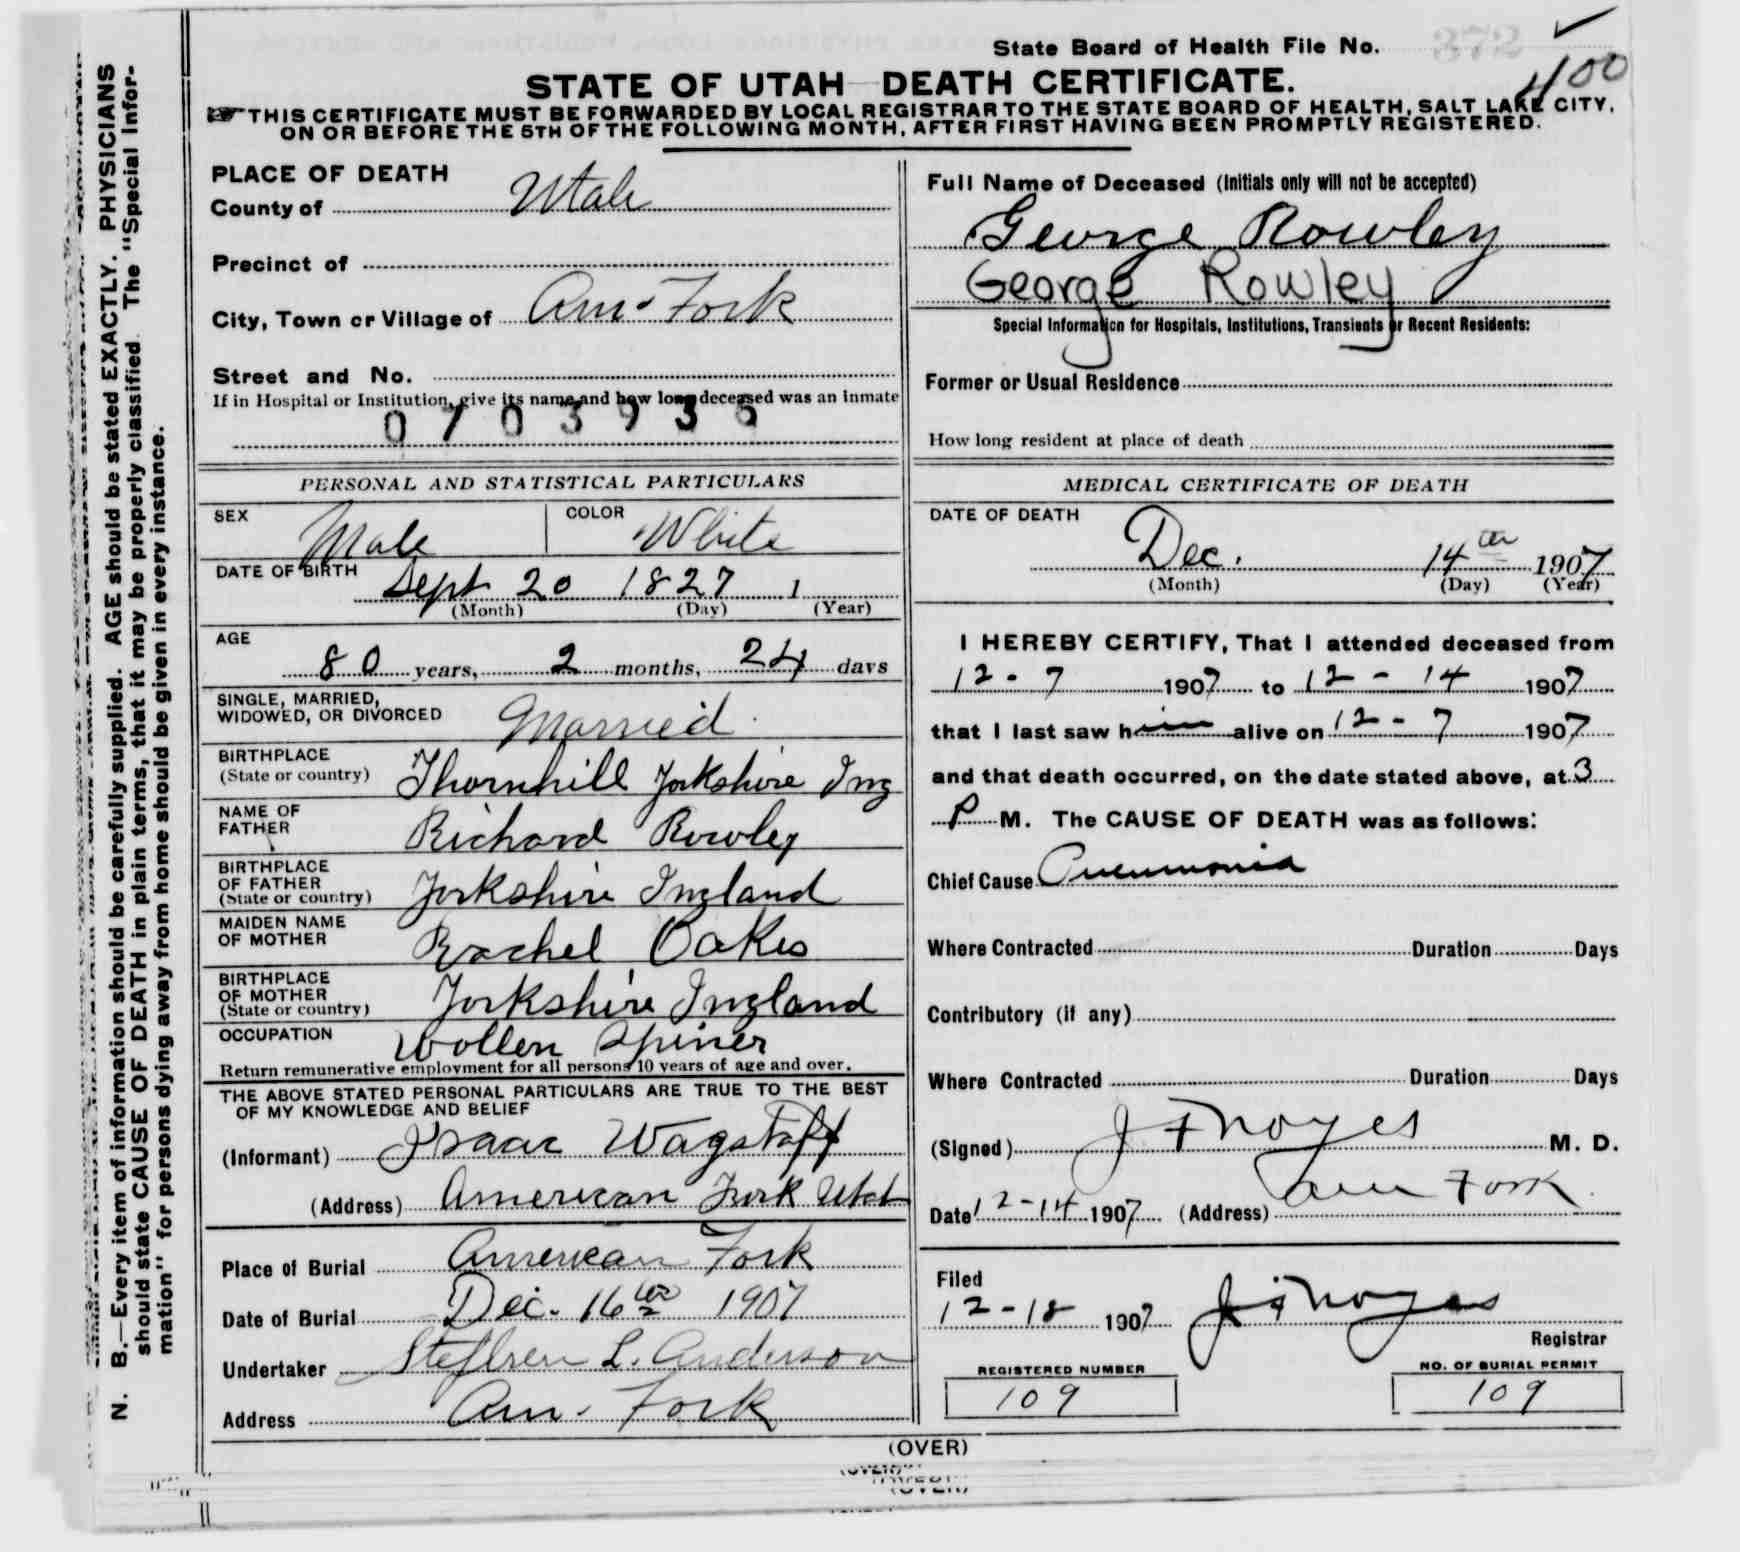 State Board of Health File No. 372
400
STATE OF UTAH DEATH CERTIFICATE.
THIS CERTIFICATE MUST BE FORWARDED BY LOCAL REGISTRAR TO THE STATE BOARD OF HEALTH, SALT LAKE CITY,
ON OR BEFORE THE 5TH OF THE FOLLOWING MONTH, AFTER FIRST HAVING BEEN PROMPTLY REGISTERED.
N. B.—Every item of information should be carefully supplied. AGE should be stated EXACTLY. PHYSICIANS
should state CAUSE OF DEATH in plain terms, that it may be properly classified. The "Special Infor-
mation" for persons dying away from home should be given in every instance.
PLACE OF DEATH
County of Utah
Precinct of
City, Town or Village of Am. Fork
Street and No.
If in Hospital or Institution, give its name and how long deceased was an inmate
0703935
PERSONAL AND STATISTICAL PARTICULARS
SEX Male COLOR White
DATE OF BIRTH Sept 20 1827 1
(Month) (Day) (Year)
AGE
80 years, 2 months, 24 days
SINGLE, MARRIED,
WIDOWED, OR DIVORCED Married
BIRTHPLACE
(State or country) Thornhill Yorkshire Ing
NAME OF
FATHER Richard Rowley
BIRTHPLACE
OF FATHER
(State or country) Yorkshire Ingland
MAIDEN NAME
OF MOTHER Rachel Oakes
BIRTHPLACE
OF MOTHER
(State or country) Yorkshire Ingland
OCCUPATION Wollen Spiner
Return remunerative employment for all persons 10 years of age and over.
THE ABOVE STATED PERSONAL PARTICULARS ARE TRUE TO THE BEST
OF MY KNOWLEDGE AND BELIEF
(Informant) Isaac Wagstaff
(Address) American Fork Utah
Place of Burial American Fork
Date of Burial Dec. 16th 1907
Undertaker Stephen L. Anderson
Address Am. Fork
Full Name of Deceased (Initials only will not be accepted)
George Rowley
George Rowley
Special Information for Hospitals, Institutions, Transients or Recent Residents:
Former or Usual Residence
How long resident at place of death
MEDICAL CERTIFICATE OF DEATH
DATE OF DEATH
Dec. 14th 1907
(Month) (Day) (Year)
I HEREBY CERTIFY, That I attended deceased from
12-7 1907 to 12-14 1907
that I last saw him alive on 12-7 1907
and that death occurred, on the date stated above, at 3
P M. The CAUSE OF DEATH was as follows:
Chief Cause Pneumonia
Where Contracted Duration Days
Contributory (if any)
Where Contracted Duration Days
(Signed) J F Noyes M. D.
Date 12-14 1907 (Address) Am Fork
Filed
12-18 1907 J F Noyes
Registrar
REGISTERED NUMBER
109
NO. OF BURIAL PERMIT
109
(OVER)
(OVER)